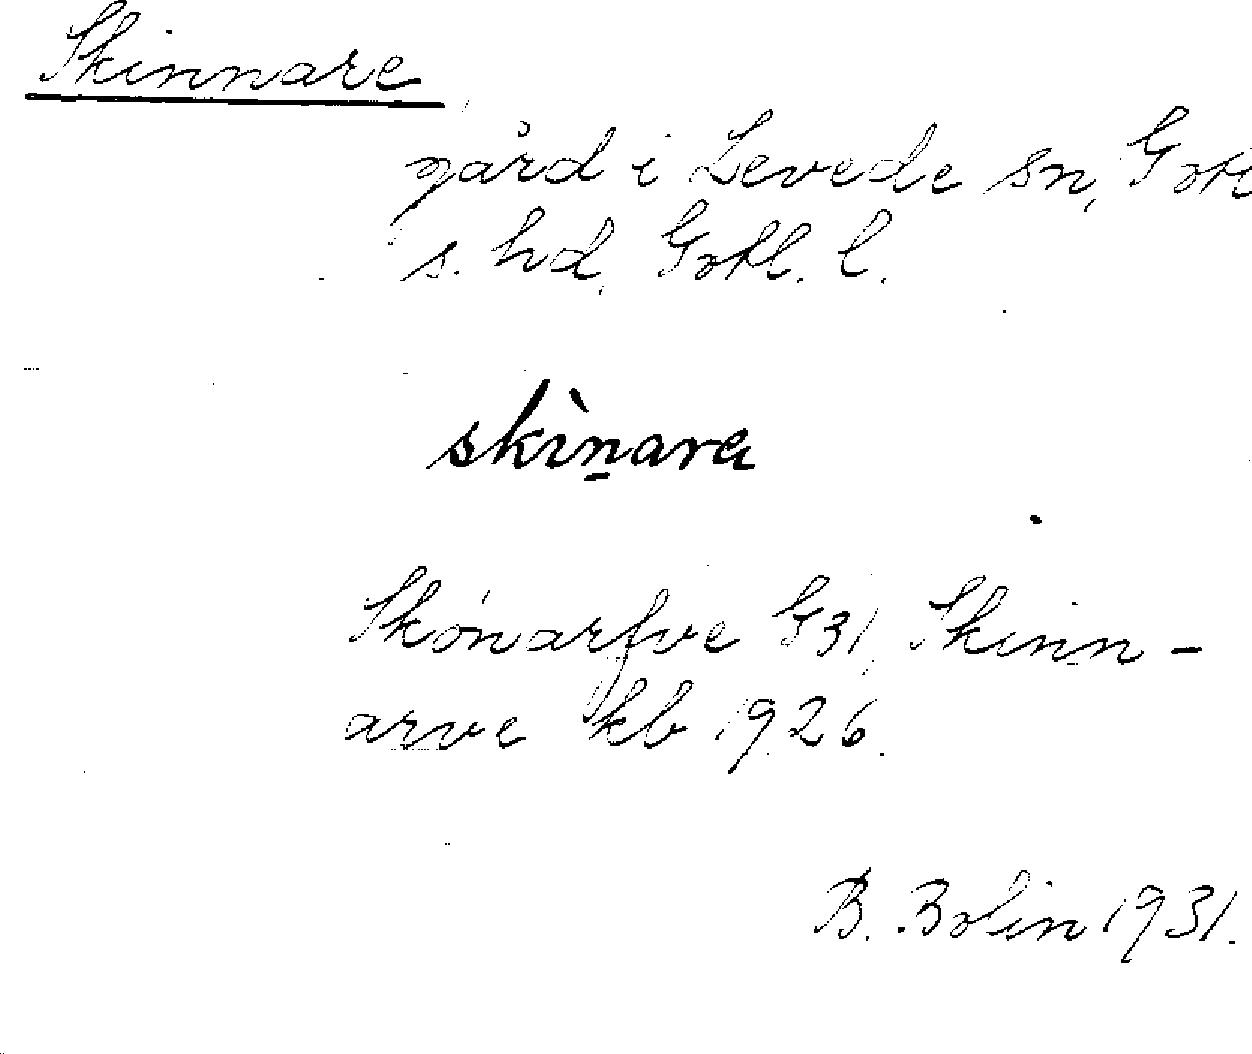 Skinnare
gård i Levede sn, Gotl
s. hd, Gotl. l.
skìn̠ara
Skonarfve G31, Skinn-
arve kb 1926.
B. Bolin 1931.